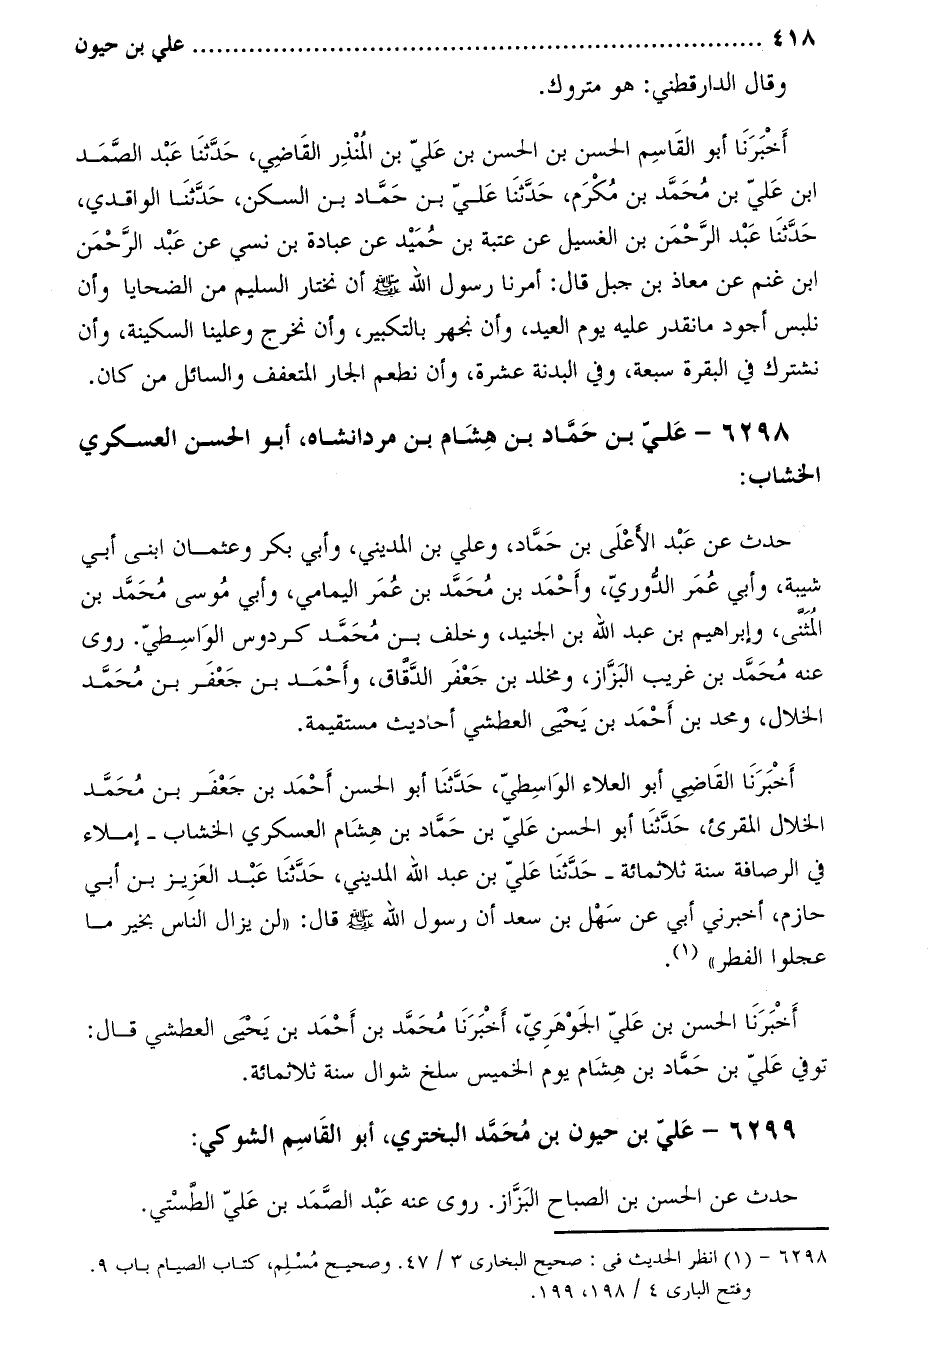 ٤١٨ ........................................................................ علي بن حيون
وقال الدارقطني: هو متروك.
أَخْبَرَنَا أبو القَاسِم الحسن بن الحسن بن عَليّ بن المُنْذِر القَاضِي، حَدَّثَنَا عَبْد الصَّمَد
ابن عَليّ بن مُحَمَّد بن مُكْرَم، حَدَّثَنَا عَليّ بن حَمَّاد بن السكن، حَدَّثَنَا الواقدي،
حَدَّثَنَا عَبْد الرَّحْمَن بن الغسيل عن عتبة بن حُمَيْد عن عبادة بن نسي عن عَبْد الرَّحْمَن
ابن غنم عن معاذ بن جبل قال: أمرنا رسول الله ﷺ أن نختار السليم من الضحايا وأن
نلبس أجود مانقدر عليه يوم العيد، وأن نجهر بالتكبير، وأن نخرج وعلينا السكينة، وأن
نشترك في البقرة سبعة، وفي البدنة عشرة، وأن نطعم الجار المتعفف والسائل من كان.
٦٢٩٨ – عَليّ بن حَمَّاد بن هِشَام بن مردانشاه، أبو الحسن العسكري
الخشاب:
حدث عن عَبْد الأَعْلَى بن حَمَّاد، وعلي بن المديني، وأبي بكر وعثمان ابنى أبي
شيبة، وأبي عُمَر الدُّوريّ، وأَحْمَد بن مُحَمَّد بن عُمَر اليمامي، وأبي مُوسى مُحَمَّد بن
المُثَنَّى، وإبراهيم بن عبد الله بن الجنيد، وخلف بن مُحَمَّد كردوس الوَاسِطيّ. روى
عنه مُحَمَّد بن غريب البَزَّاز، ومخلد بن جَعْفَر الدَّقَّاق، وأَحْمَد بن جَعْفَر بن مُحَمَّد
الخلال، ومحد بن أَحْمَد بن يَحْيَى العطشي أحاديث مستقيمة.
أَخْبَرَنَا القَاضِي أبو العلاء الوَاسِطيّ، حَدَّثَنَا أبو الحسن أَحْمَد بن جَعْفَر بن مُحَمَّد
الخلال المقرئ، حَدَّثَنَا أبو الحسن عَليّ بن حَمَّاد بن هِشَام العسكري الخشاب ـ إملاء
في الرصافة سنة ثلاثمائة ـ حَدَّثَنَا عَليّ بن عبد الله المديني، حَدَّثَنَا عَبْد العَزِيز بن أبي
حازم، أخبرني أبي عن سَهْل بن سعد أن رسول الله ﷺ قال: «لن يزال الناس بخير ما
عجلوا الفطر» (١).
أَخْبَرَنَا الحسن بن عَليّ الجَوْهَرِيّ، أَخْبَرَنَا مُحَمَّد بن أَحْمَد بن يَحْيَى العطشي قال:
توفي عَليّ بن حَمَّاد بن هِشَام يوم الخميس سلخ شوال سنة ثلاثمائة.
٦٢٩٩ – عَليّ بن حيون بن مُحَمَّد البختري، أبو القَاسِم الشوكي:
حدث عن الحسن بن الصباح البَزَّاز. روى عنه عَبْد الصَّمَد بن عَليّ الطَّسْتي.
٦٢٩٨ – (١) انظر الحديث فى : صحيح البخارى ٣ / ٤٧. وصحيح مُسْلِم، كتاب الصيام باب ٩.
وفتح البارى ٤ / ١٩٨، ١٩٩.